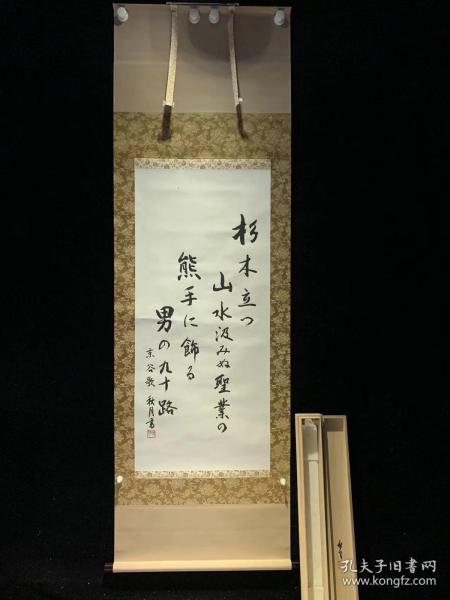 杉木立つ
山水汲みぬ聖業の
熊手に飾る
男の九十路
京谷歌 秋月書
孔夫子旧书网
www.kongfz.com